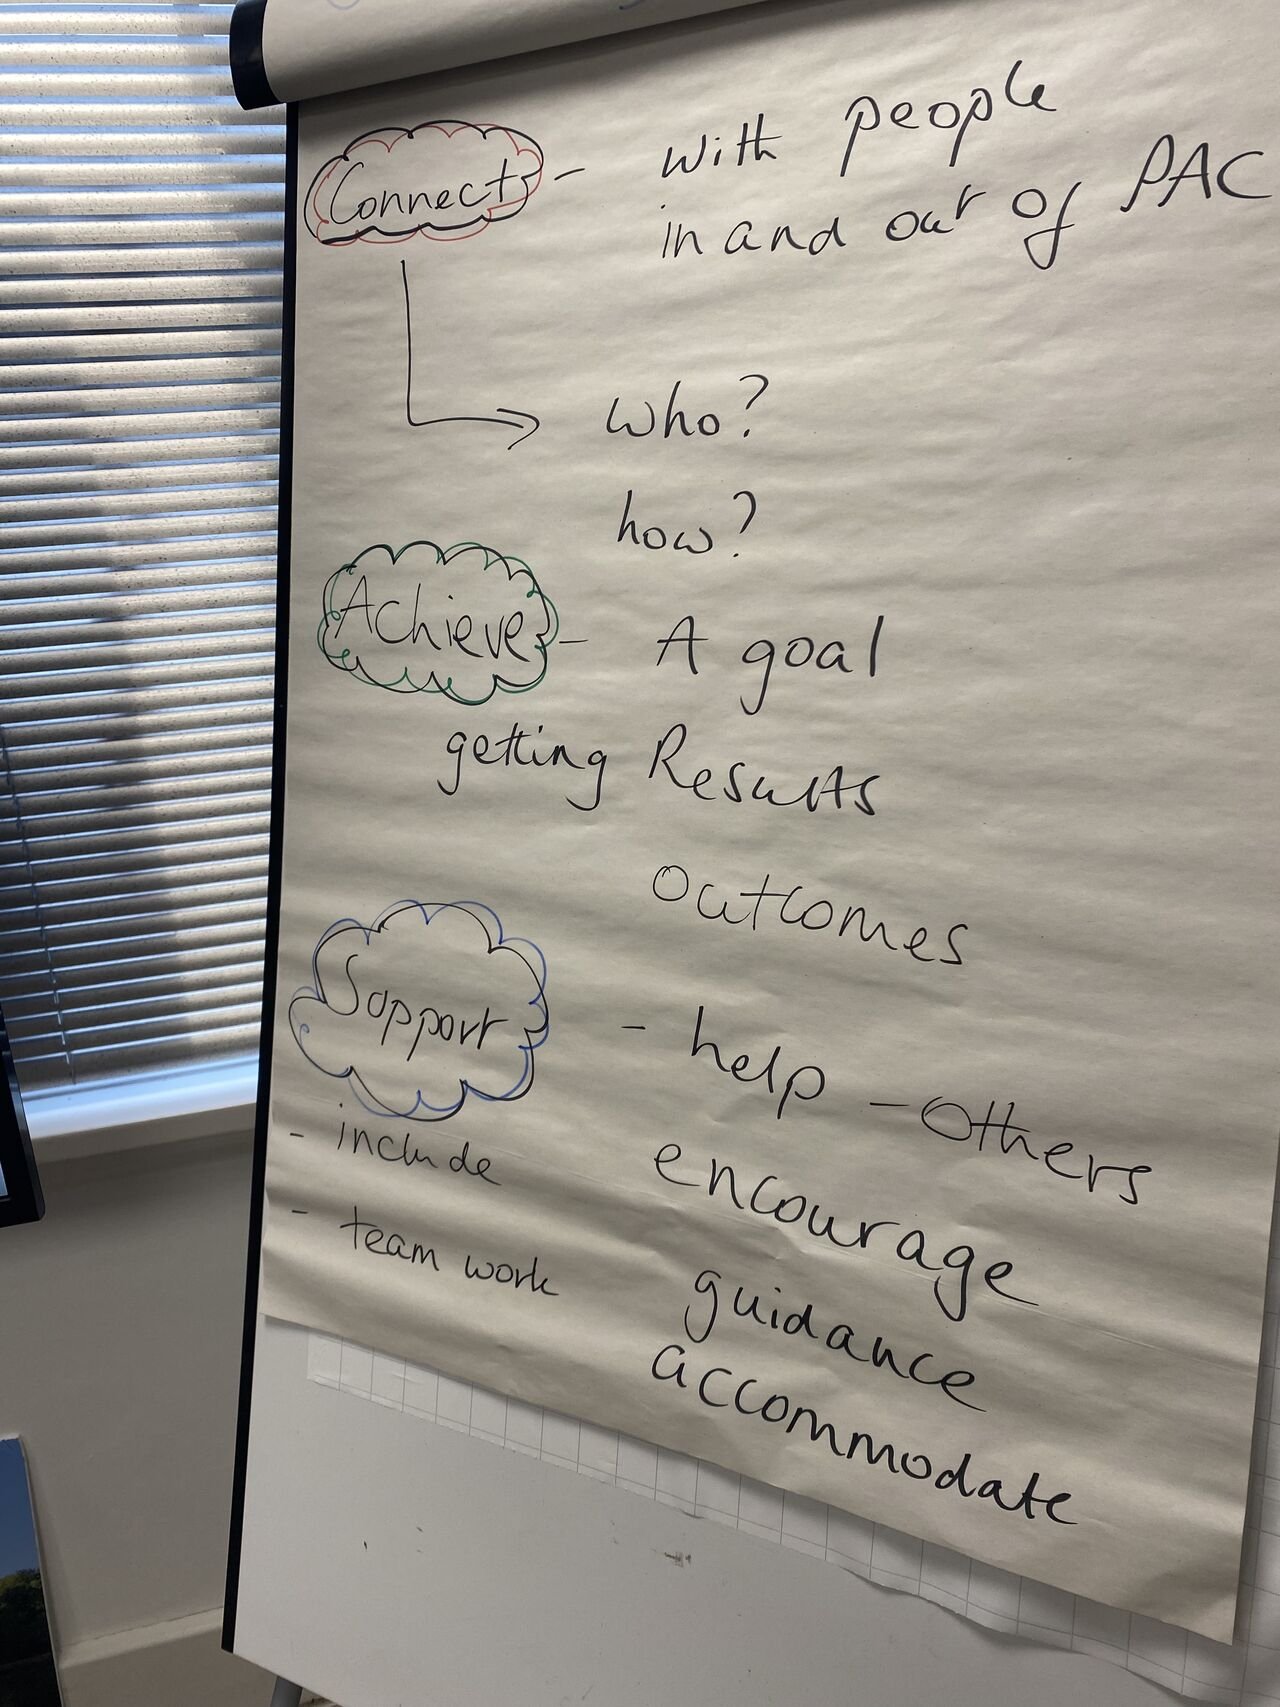 Connect - with people
in and out of PAC
who?
how?
Achieve - A goal
getting Results
outcomes
Support - help - Others
- include
encourage
- team work
guidance
accommodate